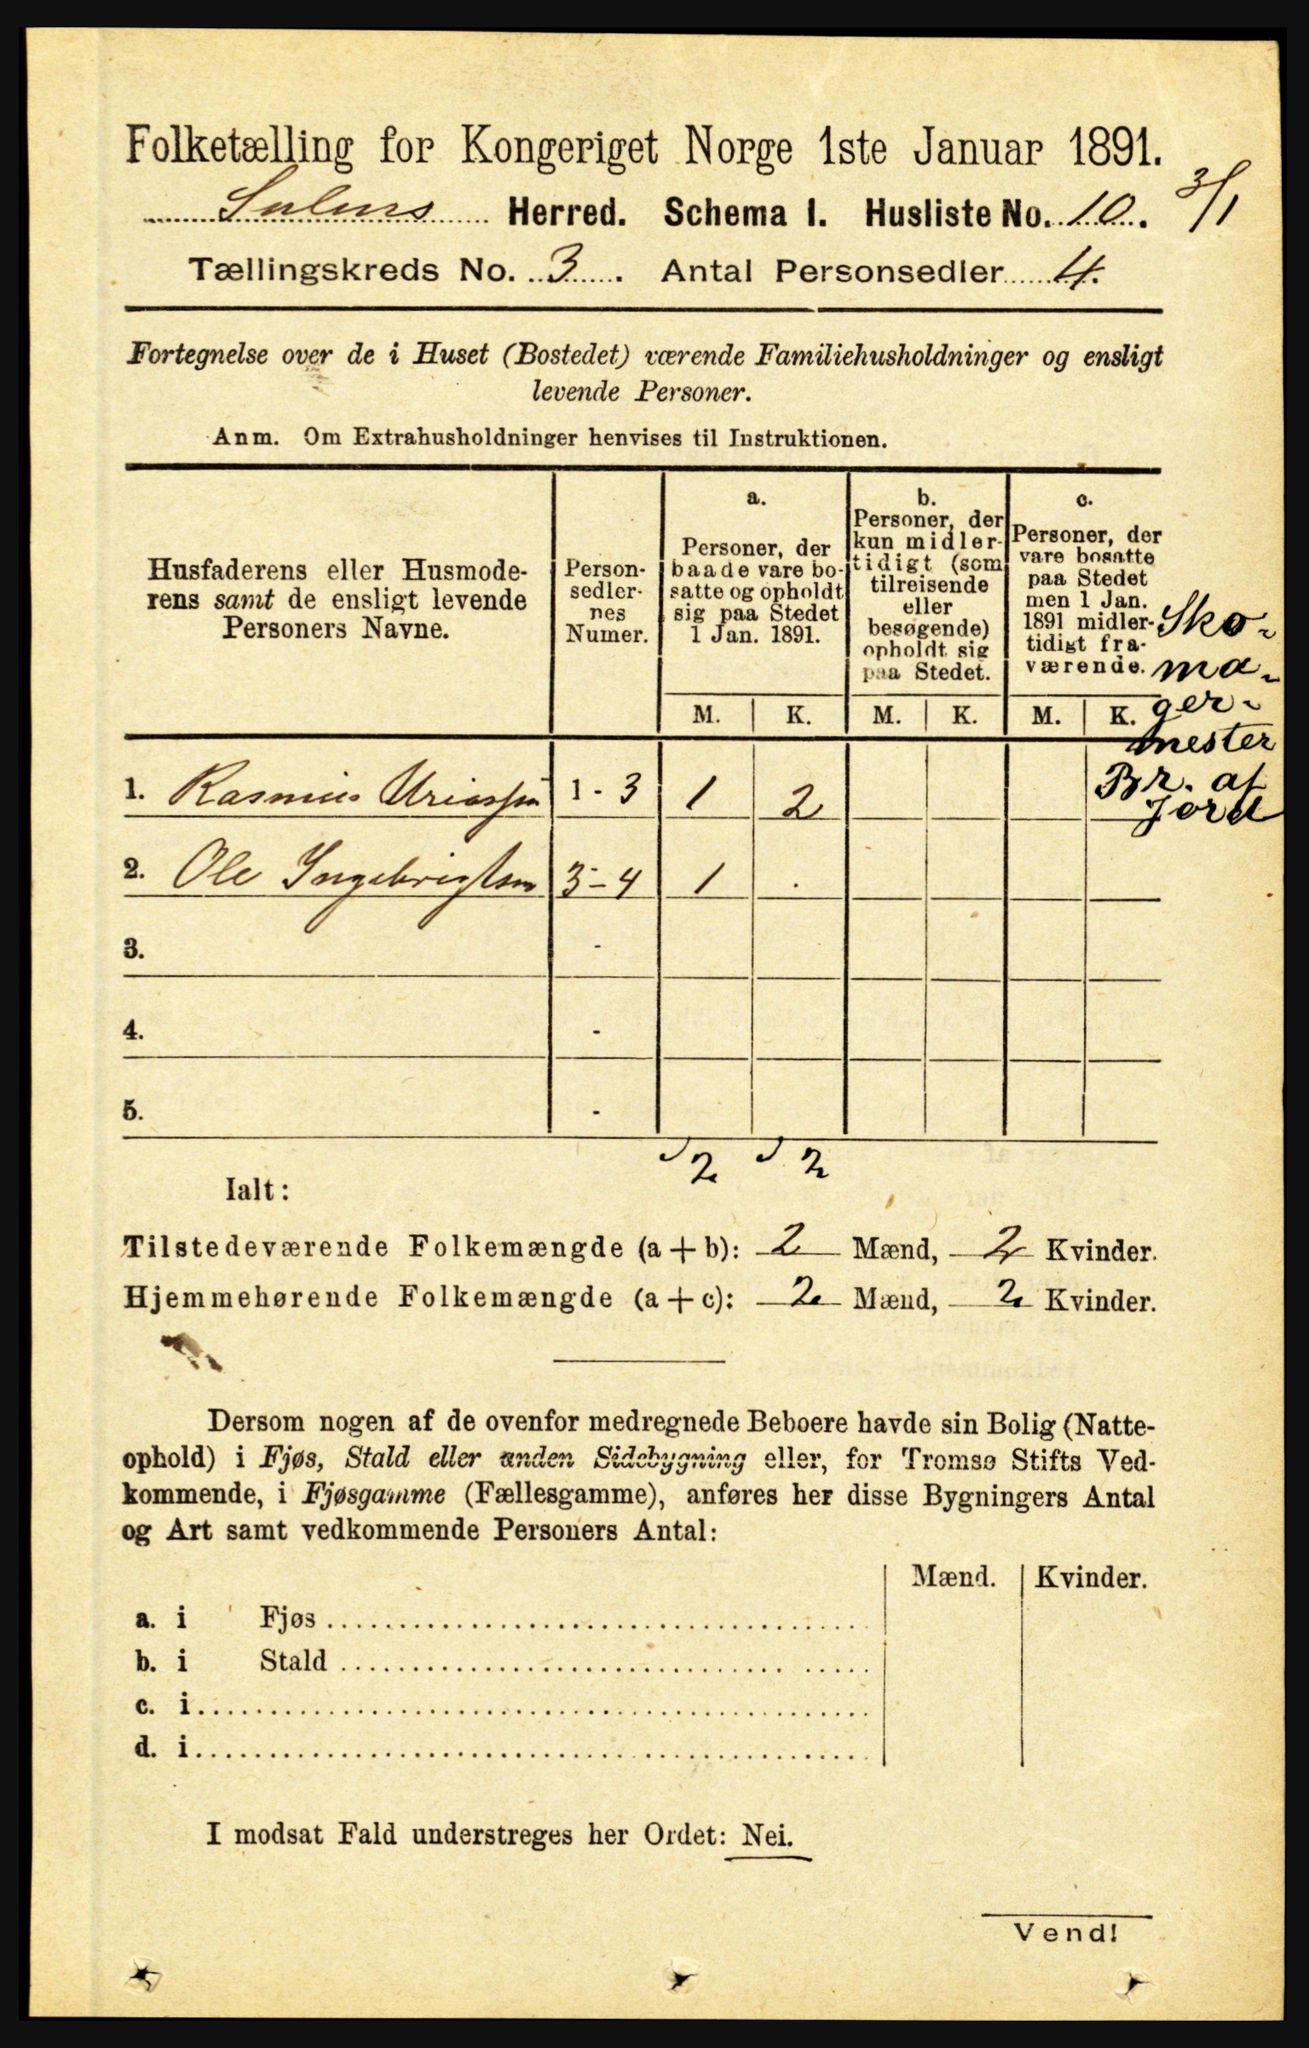 Folketælling for Kongeriget Norge 1ste Januar 1891.
Herred. Schema 1. Husliste No. 10. 3/1
Tællingskreds No. 3. Antal Personsedler 4.
Fortegnelse over de i Huset (Bostedet) værende Familiehusholdninger og ensligt
levende Personer.
Anm. Om Extrahusholdninger henvises til Instruktionen.
Husfaderens eller Husmode-
rens samt de ensligt levende
Personers Navne.
Person-
sedler-
nes
Numer.
a.
Personer, der
baade vare bo-
satte og opholdt
sig paa Stedet
1 Jan. 1891.
b.
Personer, der
kun midler-
tidigt (som
tilreisende
eller
besøgende)
opholdt sig
paa Stedet.
c.
Personer, der
vare bosatte
paa Stedet
men 1 Jan.
1891 midler-
tidigt fra-
værende.
M. K. M. K. M. K.
Sko-
ma-
ger-
mester
Br. af
Jord
1. Rasmus Uriassen 1 - 3 1 2
2. Ole Ingebrigtsen 3 - 4 1 .
3. -
4. -
5. -
2 2
Ialt:
Tilstedeværende Folkemængde (a + b): 2 Mænd, 2 Kvinder.
Hjemmehørende Folkemængde (a + c): 2 Mænd, 2 Kvinder.
Dersom nogen af de ovenfor medregnede Beboere havde sin Bolig (Natte-
ophold) i Fjøs, Stald eller anden Sidebygning eller, for Tromsø Stifts Ved-
kommende, i Fjøsgamme (Fællesgamme), anføres her disse Bygningers Antal
og Art samt vedkommende Personers Antal:
Mænd. Kvinder.
a. i Fjøs
b. i Stald
c. i
d. i
I modsat Fald understreges her Ordet: Nei.
Vend!